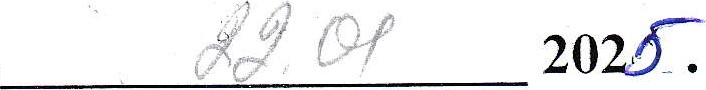 22.01 2025.